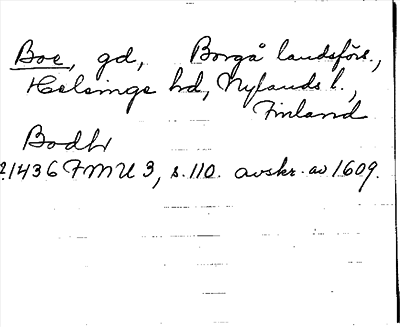 Boe, gd, Borgå landsförs.,
Helsinge hd, Nylands l.,
Finland
Bodhr
1436 FMU 3, s. 110. avskr. av 1609.